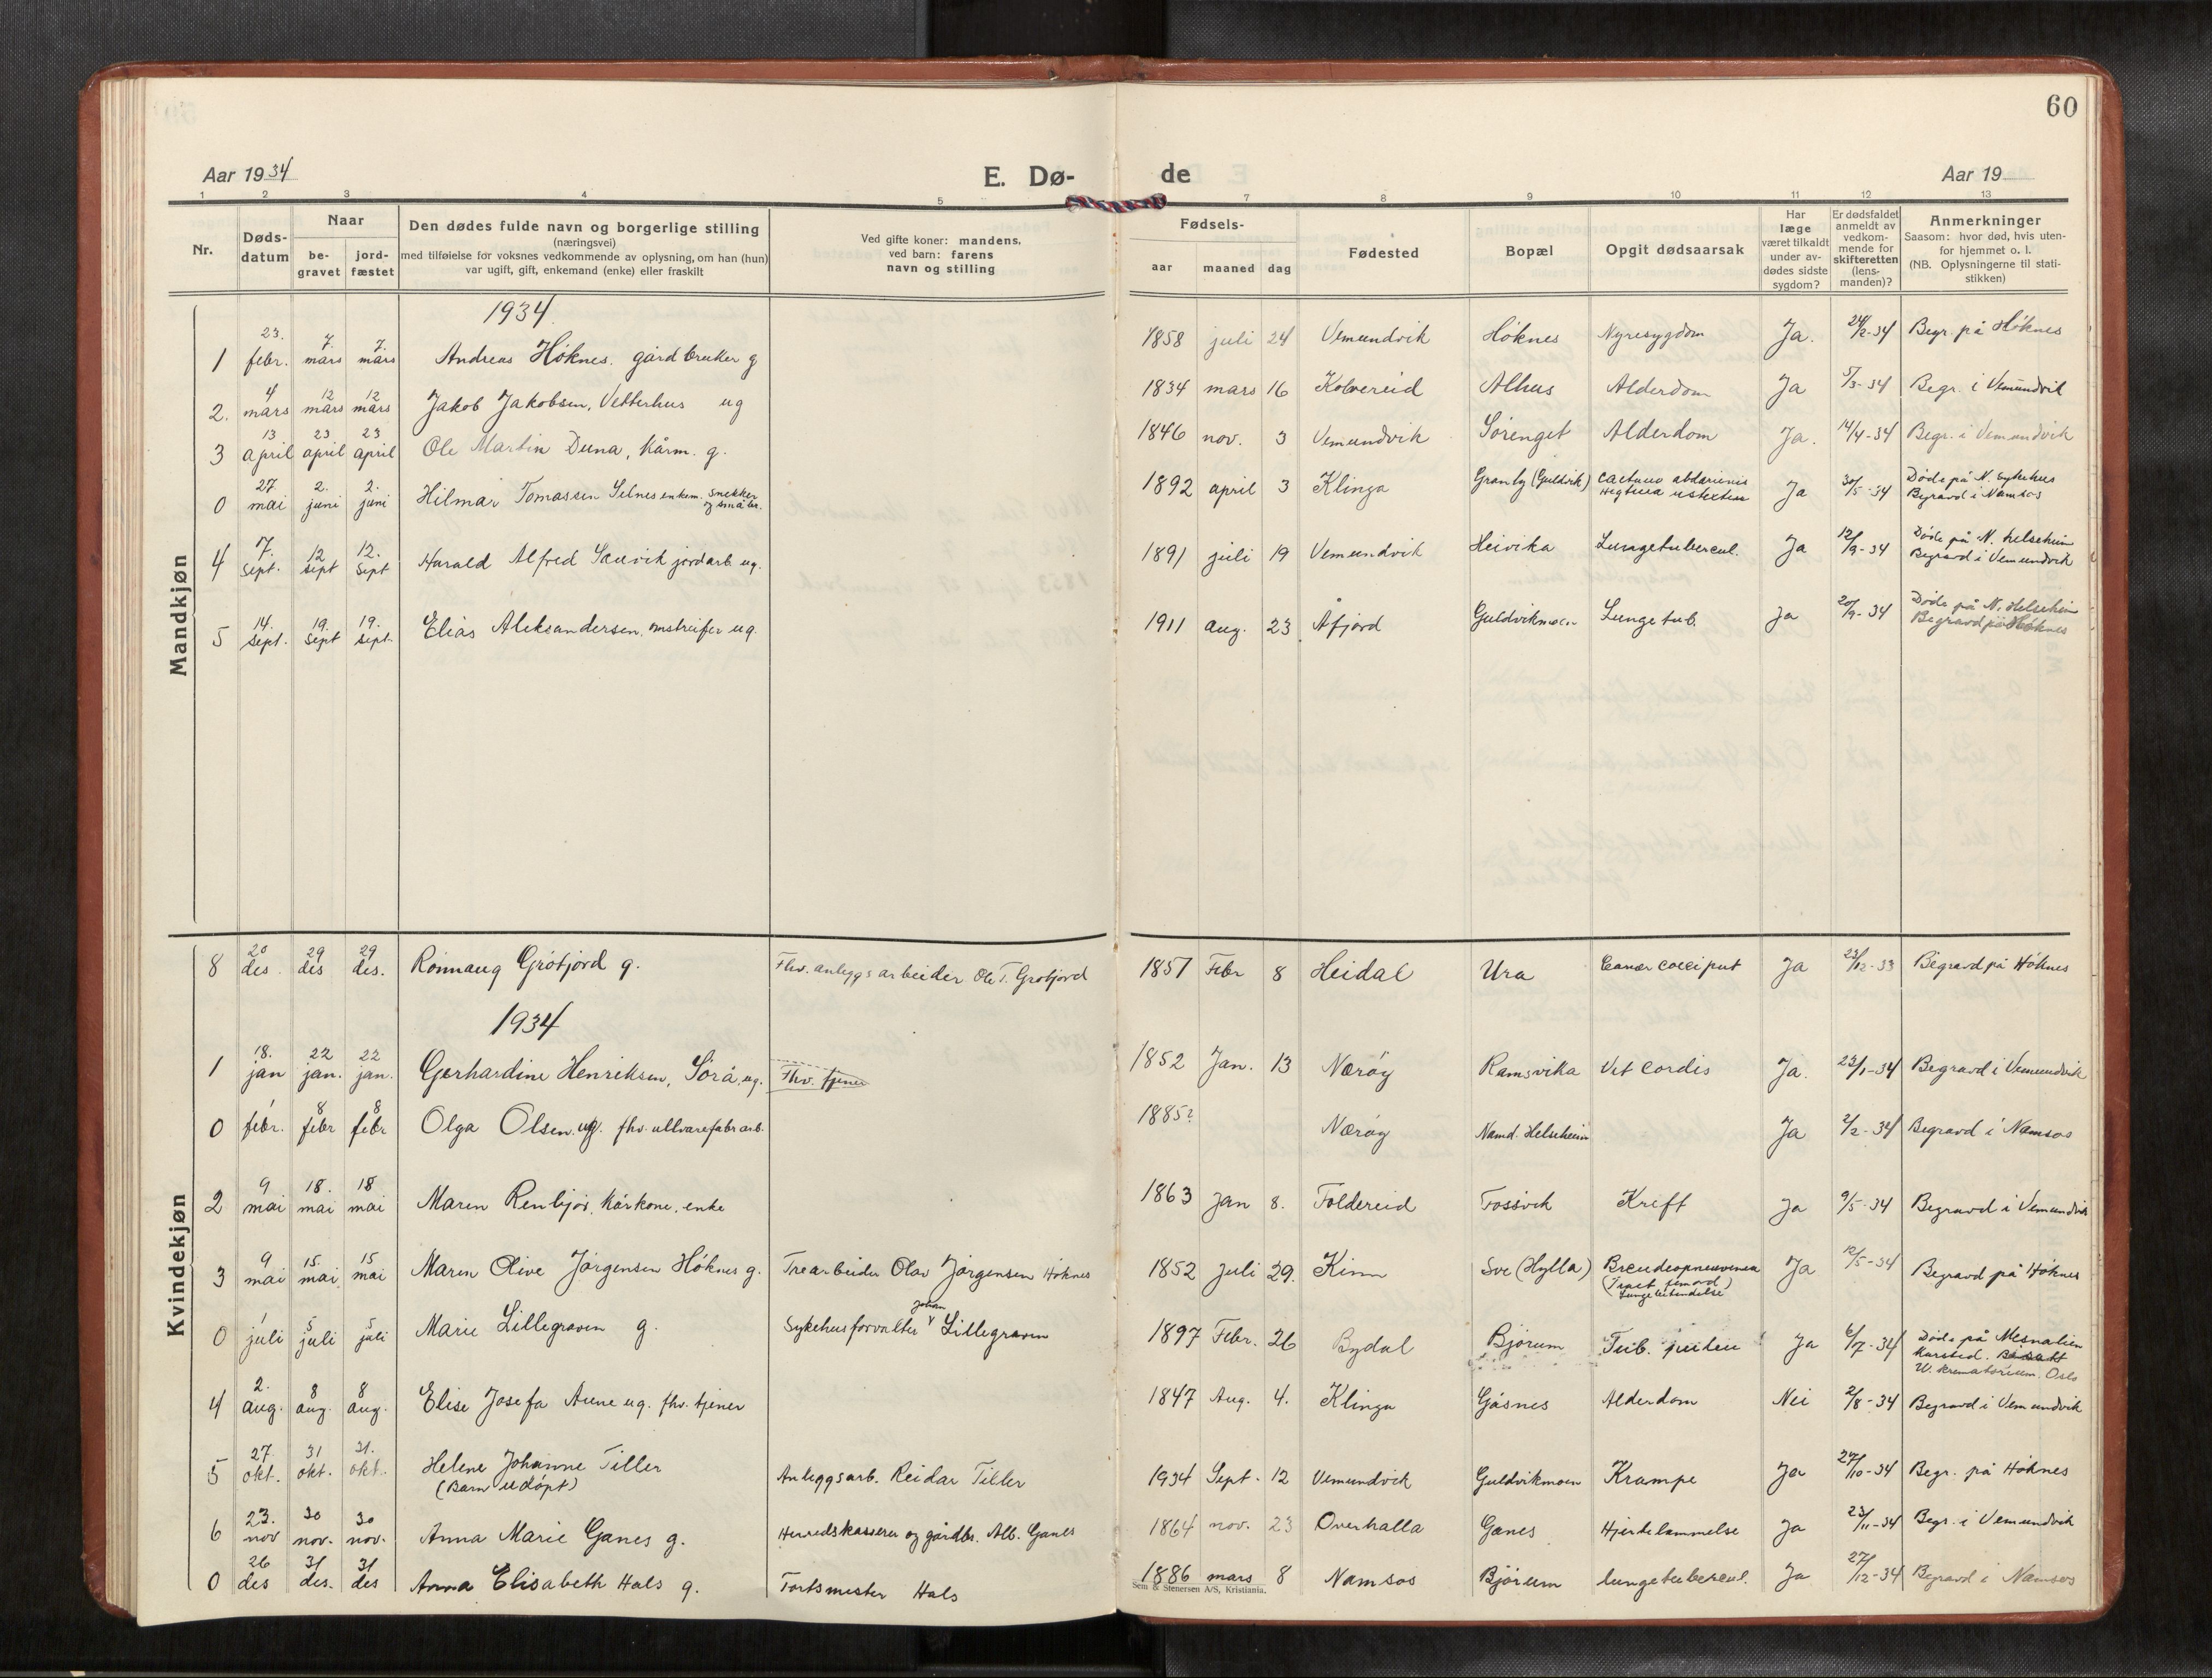 60
Aar 1934 E. Dø- de Aar 19
1 2 3 4 5 7 8 9 10 11 12 13
Nr. Døds-datum Naar be-gravet jord-fæstet Den dødes fulde navn og borgerlige stilling (næringsvei) med tilføielse for voksnes vedkommende av oplysning, om han (hun) var ugift, gift, enkemand (enke) eller fraskilt Ved gifte koner: mandens, ved barn: farens navn og stilling Fødsels- aar maaned dag Fødested Bopæl Opgit dødsaarsak Har læge været tilkaldt under av-dødes sidste sygdom? Er dødsfaldet anmeldt av vedkom-mende for skifteretten (lens-manden)? Anmerkninger Saasom: hvor død, hvis uten-for hjemmet o. l. (NB. Oplysningerne til stati-stikken)
Mandkjøn
1934
1 23. febr. 7. mars 7. mars Andreas Høknes. gårdbruker g 1858 juli 24 Vemundvik Høknes Nyresygdom Ja. 24/2-34 Begr. på Høknes
2. 4 mars 12 mars 12 mars Jakob Jakobsen, Vetterhus ug 1834 mars 16 Kolvereid Alhus Alderdom Ja 5/3-34 Begr. i Vemundvik
3 13 april 23 april 23 april Ole Martin Duna, kårm. g. 1846 nov. 3 Vemundvik Sörenget Alderdom Ja. 14/4-34 Begr. i Vemundvik
0 27. mai 2. juni 2. juni Hilmar Tomassen Selnes enkem. snekker og småbr. 1892 april 3 Klinga Granly (Guldvik) Ja 30/5-34 Døde på N. sykehus Begravd i Namsos
4 7. sept. 12 sept 12. sept Harald Alfred Sauvik jordarb. ug. 1891 juli 19 Vemundvik Heivika Lungetubercul. Ja 12/9-34 Døde på N. helseheim Begravd i Vemundvik
5 14. sept. 19. sept 19. sept. Elias Aleksandersen, omstreifer ug. 1911 aug. 23 Åfjord Guldvikmoen Lungetub. Ja 20/9-34 Døde på N. Helseheim Begravd på Høknes
Kvindekjøn
8 20 des. 29 des 29 des. Rönnaug Gröfjord g. Fhv. anleggsarbeider Ole T. Gröfjord 1857 Febr 8 Heidal Ura Ja 23/12-33 Begravd på Høknes
1934
1 18. jan 22 jan. 22 jan. Gerhardine Henriksen, Sörå, ug. Fhv. tjener 1852 Jan. 13 Nærøy Ramsvika Vit cordis Ja. 23/1-34 Begravd i Vemundvik
0 1 febr. 8 febr 8 febr Olga Olsen. ug. fhv. ullvarefabr.arb. 1885? Nærøy Namd. Helseheim Ja 2/2-34 Begravd i Namsos
2 9 mai 18. mai 18 mai Maren Renbjör, kårkone, enke 1863 Jan 8. Foldereid Fossvik Kreft Ja 9/5-34 Begravd i Vemundvik
3 9 mai 15. mai 15 mai Maren Olive Jørgensen Høknes g. Trearbeider Olav Jørgensen Høknes 1852 Juli 29. Kinn Sve (Hylla) Ja 12/5-34 Begravd på Høknes
0 1 juli 5 juli 5 juli Marie Lillegraven g. Sykehusforvalter Johan Lillegraven 1897 Febr. 26 Bydal Bjørum Ja 6/7-34 Døde på Mesnalien Kursted. V. Krematorium. Oslo
4 2. aug. 8 aug. 8 aug. Elise Josefa Aune ug. fhv. tjener 1847 Aug. 4. Klinga Gåsnes Alderdom Nei 2/8-34 Begravd i Vemundvik
5 27. okt. 31 okt. 31. okt. Helene Johanne Tiller (Barn udöpt) Anleggsarb. Reidar Tiller 1934 Sept. 12 Vemundvik Guldvikmoen Krampe Ja 27/10-34 Begr. på Høknes
6 23. nov 30 nov. 30 nov. Anna Marie Ganes g. Herredskasserer og gårdbr. Alb. Ganes 1864 nov. 23 Overhalla Ganes Hjertelammelse Ja 23/11-34 Begr. i Vemundvik
0 26 des 31 des. 31 des Anna Elisabeth Hals g. Tortsmester Hals 1886 mars 8 Namsos Bjørum lungetubercul. Ja 27/12-34 Begravd i Namsos
Sem & Stenersen A/S, Kristiania.